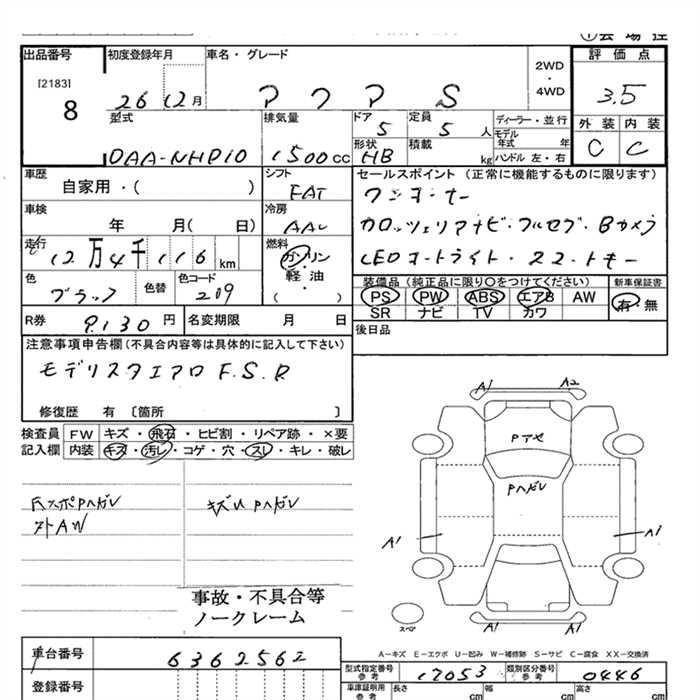 出品番号 初度登録年月 車名・グレード 評価点
[2183] 8
26 12月 アクア S
2WD・4WD
3.5
型式 排気量 ドア 定員 ディーラー・並行
DAA-NHP10 1500cc 5 5人
モデル年式 年
形状 HB 積載 kg ハンドル 左・右
外装 内装
C C
車歴 自家用・( )
シフト FAT
セールスポイント (正常に機能するものに限ります)
ワンオーナー
カロッツェリアナビ・フルセグ・Bカメラ
LEDオートライト・スマートキー
車検 年 月( 日)
冷房 AAC
走行 12万4千116km
燃料 ガソリン・軽油・( )
色 ブラック 色替 色コード 209
装備品 (純正品に限り○をつけてください) 新車保証書
PS PW ABS エアB AW 有・無
SR ナビ TV カワ
R券 9,130円 名変期限 月 日
後日品
注意事項申告欄(不具合内容等は具体的に記入して下さい)
モデリスタエアロ F.S.R
修復歴 有 〔箇所 〕
検査員記入欄
FW キズ・飛石・ヒビ割・リペア跡・×要
内装 キズ・汚レ・コゲ・穴・スレ・キレ・破レ
外AW
事故・不具合等
ノークレーム
A1 A2
Pアセ
Pハゲレ
A1 A1
A1 A1
スペア
A-キズ E-エクボ U-凹み W-補修跡 S-サビ C-腐食 XX-交換済
車台番号 6362562
型式指定番号 参考 17053 類別区分番号 参考 0446
登録番号
車庫証明用 参考 長さ cm 幅 cm 高さ cm